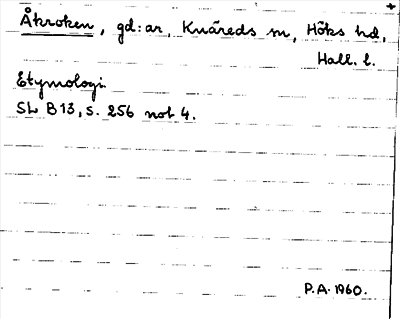 Åkroken, gd:ar, Knäreds sn, Höks hd,
Hall. l.
Etymologi.
SL B13, s. 256 not 4.
P.A. 1960.